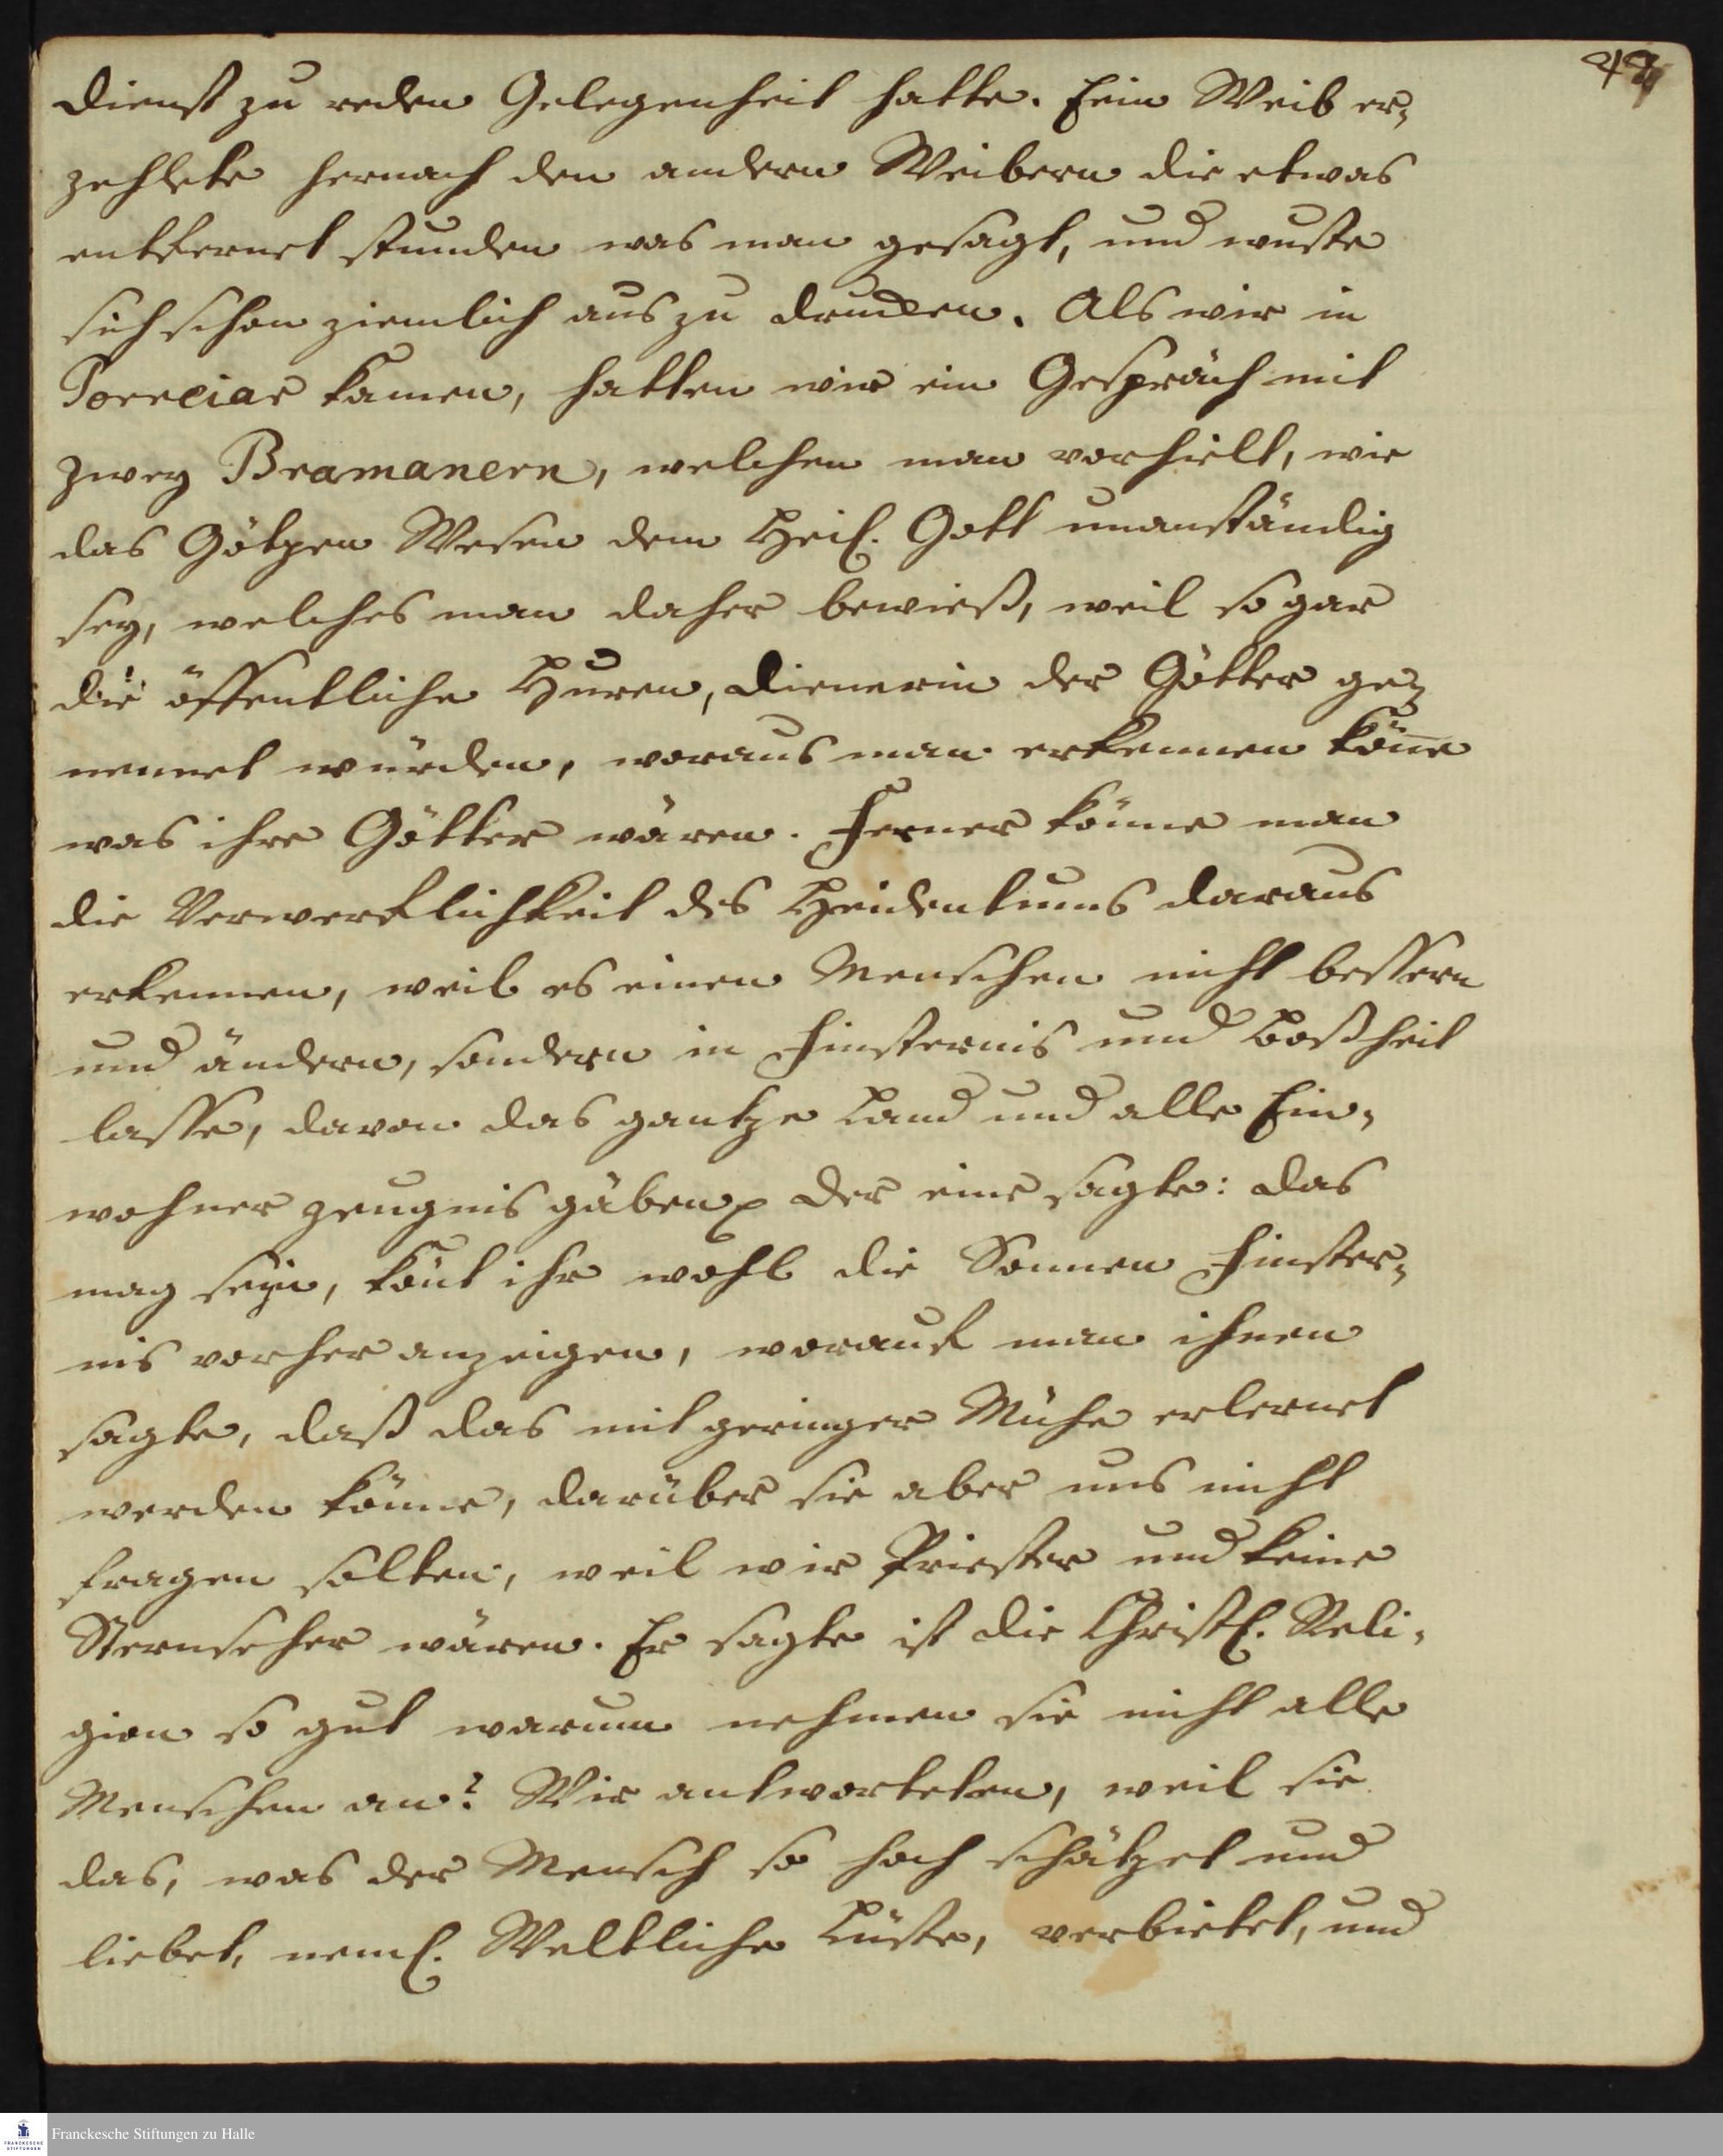 dienst zu reden Gelegenheit hatte. Ein Weib er-
zehlete hernach den andern Weibern die etwas
entfernet stunden was man gesagt, und wuste
sich schon ziemlich aus zu drucken. Als wir in
Porreiar kamen, hatten wir ein Gespräch mit
zwey Bramanern, welchen man vorhielt, wie
das Götzen Wesen dem Heil. Gott unanständig
sey, welches man daher bewieß, weil so gar
die öffentliche Huren, Dienerin der Götter ge-
nennet würden, woraus man erkennen köñe
was ihre Götter wären. Ferner könne man
die Verwerflichkeit des Heidentums daraus
erkennen, weil es einen Menschen nicht bessern
und ändern, sondern in Finsternis und Boßheit
lasse, davon das gantze Land und alle Ein-
wohner zeugnis gäben der eine sagte: das
mag seyn, köñt ihr wohl die Sonnen Finster-
nis vorher anzeigen, worauf man ihnen
sagte, daß das mit geringer Mühe erlernet
werden könne, darüber sie aber uns nicht
fragen solten, weil wir Priester und keine
Sternseher wären. Er sagte ist die Christl. Reli-
gion so gut warum nehmen sie nicht alle
Menschen an? Wir antworteten, weil sie
das, was der Mensch so hoch schätzet und
liebet, neml. Weltliche Lüste, verbietet, und
Franckesche Stiftungen zu Halle